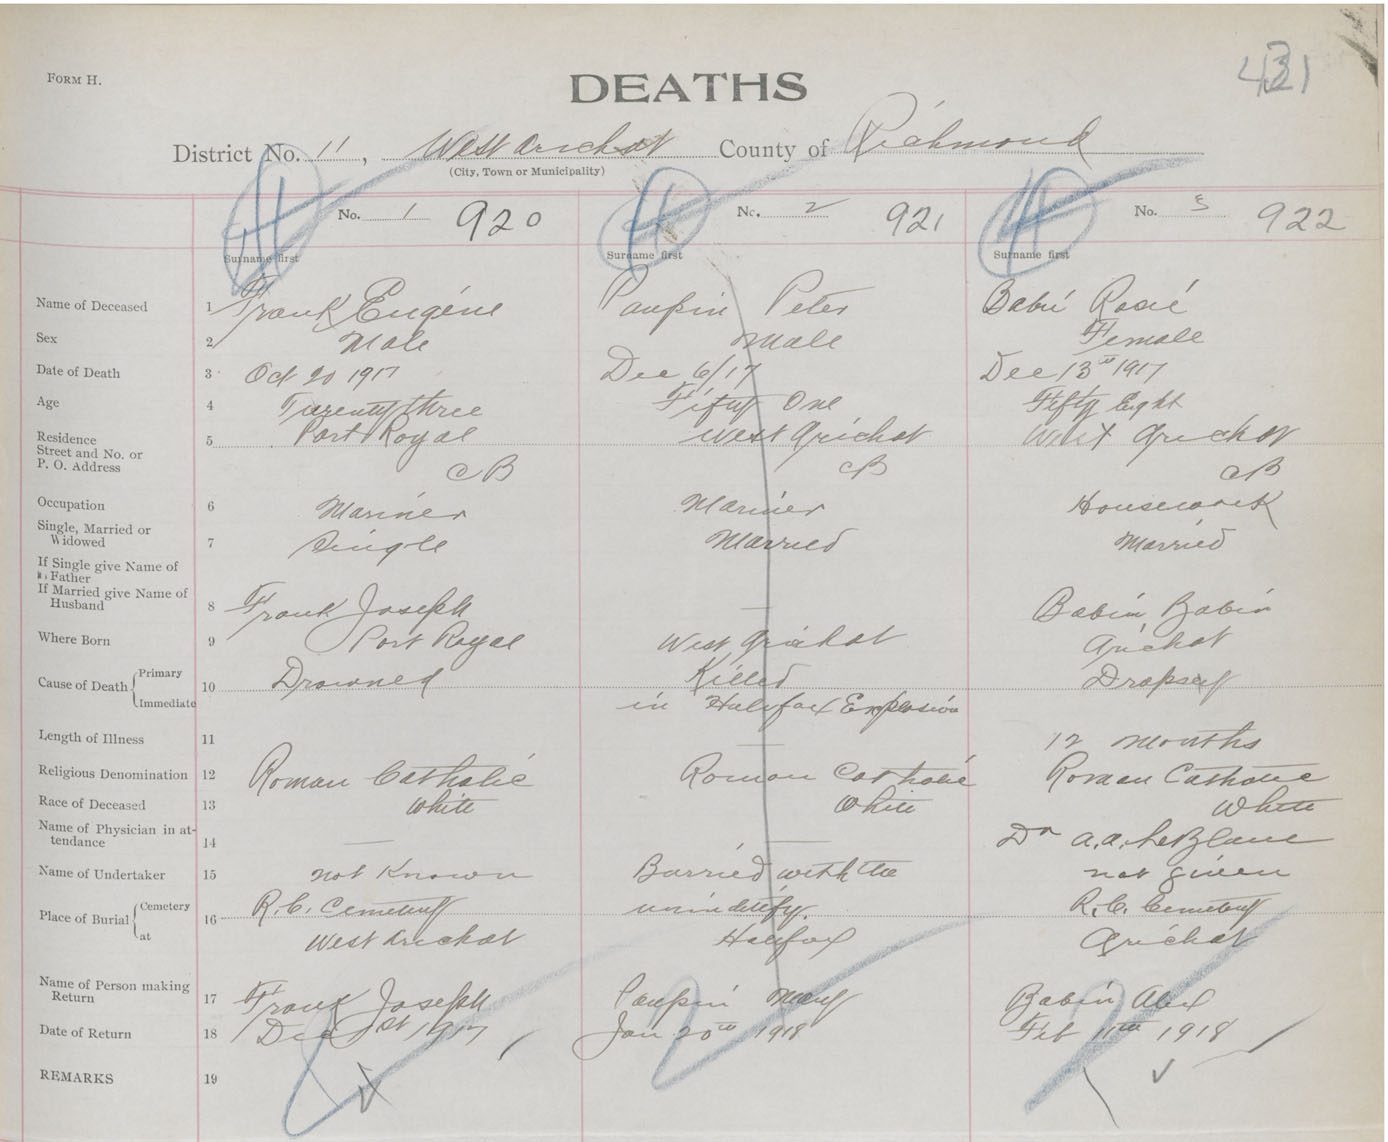 FORM H.
DEATHS
431
District No. 11, West Arichat County of Richmond
(City, Town or Municipality)
No. 1 920 No. 2 921 No. 3 922
Surname first Surname first Surname first
Name of Deceased 1 Frank Eugéne Paupin Peter Babin Rosié
Sex 2 Male Male Female
Date of Death 3 Oct 20 1917 Dec 6/17 Dec 13th 1917
Age 4 Twenty three Fifty One Fifty Eight
Residence 5 Port Royal West Arichat West Arichat
Street and No. or
P. O. Address CB CB CB
Occupation 6 Mariner Mariner Housework
Single, Married or
Widowed 7 Single Married Married
If Single give Name of
Father
If Married give Name of
Husband 8 Frank Joseph — Babin, Babin
Where Born 9 Port Royal West Arichat Arichat
Cause of Death { Primary 10 Drowned Killed Dropsey
Immediate in Halifax Explosion
Length of Illness 11 — 12 months
Religious Denomination 12 Roman Catholic Roman Catholic Roman Catholic
Race of Deceased 13 White White White
Name of Physician in at-
tendance 14 — Dr A.A. LeBlanc
Name of Undertaker 15 not Known Burried with the not given
Place of Burial { Cemetery 16 R.C. Cemetery R.C. Cemetery
at West Arichat Halifax Arichat
Name of Person making
Return 17 Frank Joseph Paupin Mary Babin Abel
Date of Return 18 Dec 1st 1917 Jan 20th 1918 Feb 11th 1918
REMARKS 19